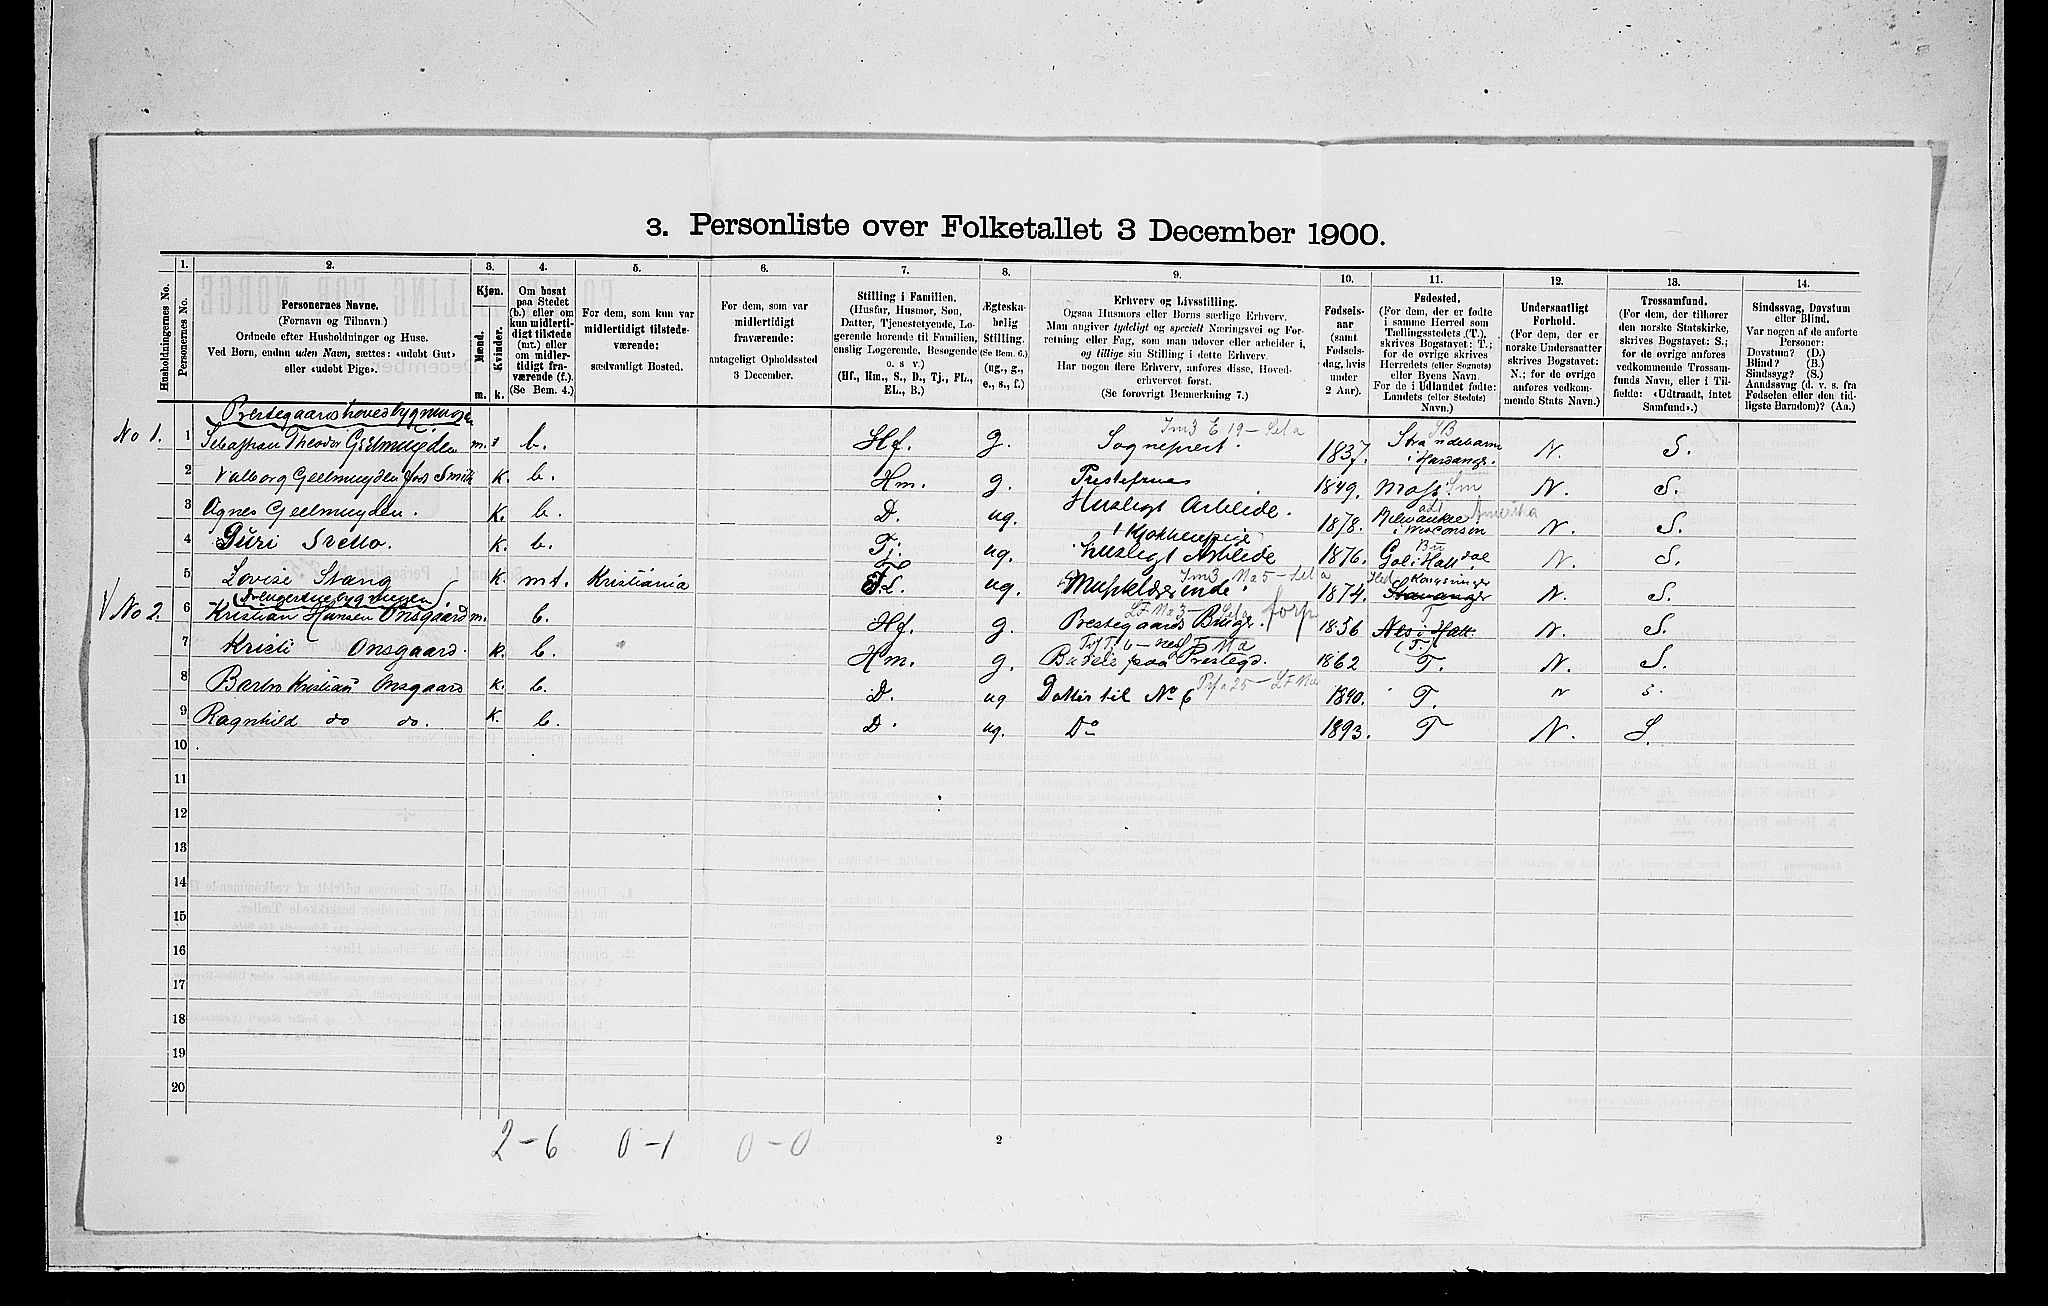 3. Personliste over Folketallet 3 December 1900.
Husholdningernes No.
1. Personernes No.
2. Personernes Navne.
(Fornavn og Tilnavn.)
Ordnede efter Husholdninger og Huse.
Ved Børn, endnu uden Navn, sættes: «udøbt Gut»
eller «udøbt Pige».
3. Kjøn.
Mænd. Kvinder.
m. k.
4. Om bosat
paa Stedet
(b.) eller om
kun midlerti-
digt tilstede
(mt.) eller
om midler-
tidigt fra-
værende (f.).
(Se Bem. 4.)
5. For dem, som kun var
midlertidigt tilstede-
værende:
sædvanligt Bosted.
6. For dem, som var
midlertidigt
fraværende:
antageligt Opholdssted
3 December.
7. Stilling i Familien.
(Husfar, Husmor, Søn,
Datter, Tjenestetyende, Lo-
gerende hørende til Familien,
enslig Logerende, Besøgende
o. s. v.)
(Hf., Hm., S., D., Tj., FL.,
EL., B.)
8. Ægteska-
belig
Stilling.
(Se Bem. 6.)
(ug., g.,
e., s., f.)
9. Erhverv og Livsstilling.
Ogsaa Husmors eller Børns særlige Erhverv.
Man angiver tydeligt og specielt Næringsvei og For-
retning eller Fag, som man udøver eller arbeider i,
og tillige sin Stilling i dette Erhverv.
Har nogen flere Erhverv, anføres disse, Hoved-
erhvervet først.
(Se forøvrigt Bemerkning 7.)
10. Fødsels-
aar
(samt
Fødsels-
dag, hvis
under
2 Aar).
11. Fødested.
(For dem, der er fødte
i samme Herred som
Tællingsstedets (T.),
skrives Bogstavet: T.;
for de øvrige skrives
Herredets (eller Sognets)
eller Byens Navn.
For de i Udlandet fødte:
Landets (eller Stedets)
Navn.)
12. Undersaatligt
Forhold.
(For dem, der er
norske Undersaatter
skrives Bogstavet:
N.; for de øvrige
anføres vedkom-
mende Stats Navn.)
13. Trossamfund.
(For dem, der tilhører
den norske Statskirke,
skrives Bogstavet: S.;
for de øvrige anføres
vedkommende Trossam-
funds Navn, eller i Til-
fælde: «Udtraadt, intet
Samfund».)
14. Sindssvag, Døvstum
eller Blind.
Var nogen af de anførte
Personer:
Døvstum? (D.)
Blind? (B.)
Sindssyg? (S.)
Aandssvag (d. v. s. fra
Fødselen eller den tid-
ligste Barndom)? (Aa.)
Prestegaards hovedbygningen
No 1. 1 Sebastian Theodor Geelmuyden m. b. Hf. g. Sogneprest. 1837. Strandebarm i Hardanger. N. S.
2 Valborg Geelmuyden født Smith k. b. Hm. g. Prestefrue 1849. Moss N. S.
3 Agnes Geelmuyden. k. b. D. ug. Husligt Arbeide. 1878. Milwaukee i Wisconsin Amerika N. S.
4 Guri k. b. Tj. ug. Kjøkkenpige husligt Arbeide 1876. Gol i Halldal N. S.
5 Lovise Stang k. mt. Kristiania FL. ug. 1874. Kongsvinger Stavanger N. S.
Drengestuebygningen
V No 2. 6 Kristian Hansen Onsgaard m. b. Hf. g. Prestegaards Bruger. forp 1856 Nes i Hall. T N. S.
7 Kristi Onsgaard. k. b. Hm. g. Budeie paa Prestegd. 1862 T. N. S.
8 Barbro Kristians Onsgaard k. b. D. ug Datter til No 6 1890. T. N S.
9 Ragnhild do do. k. b. D. ug. Do 1893. T N. S.
10
11
12
13
14
15
16
17
18
19
20
2 - 6 0 - 1 0 - 0
2